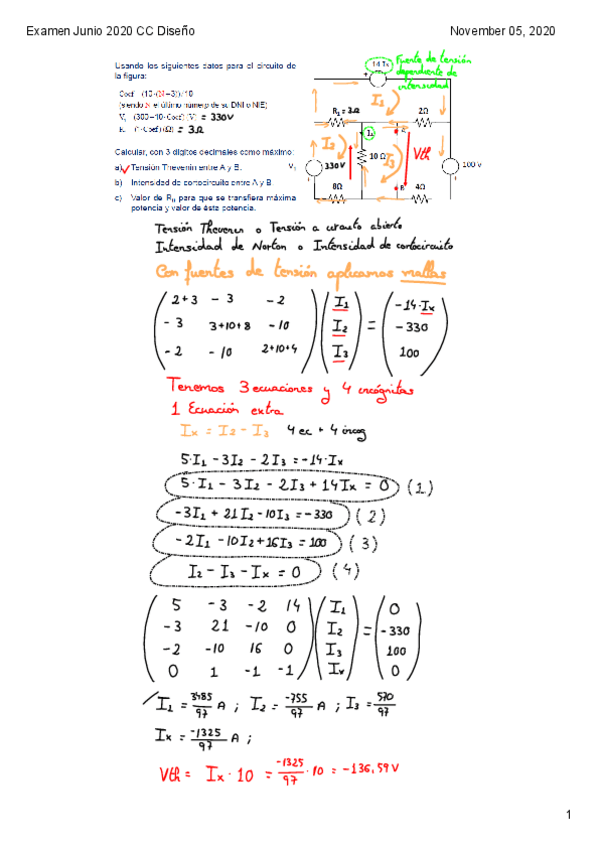 Examen Junio 2020 CC Diseño
November 05, 2020
Usando los siguientes datos para el circuito de
la figura:
Coef (10·(N+3))/10
(siendo N el último número de su DNI o NIE)
V₁ (300+10·Coef) (V) = 330V
(Ω) = 3Ω
Calcular, con 3 dígitos decimales como máximo:
a) Tensión Thevenin entre A y B.
b) Intensidad de cortocircuito entre A y B.
c) Valor de R_L para que se transfiera máxima
potencia y valor de ésta potencia.
14 Ix
Fuente de tensión
dependiente de
intensidad
I₁
R₁ = 3Ω
2Ω
Ix
A
I₂
I₃
Vth
V₁
330V
10 Ω
100 V
8Ω
B
4Ω
Tensión Thevenin o Tensión a circuito abierto
Intensidad de Norton o Intensidad de cortocircuito
Con fuentes de tensión aplicamos mallas
2+3 -3 -2 I₁ -14·Ix
-3 3+10+8 -10 I₂ = -330
-2 -10 2+10+4 I₃ 100
Tenemos 3 ecuaciones y 4 incógnitas
1 Ecuación extra
Ix = I₂ - I₃ 4 ec + 4 incog
5·I₁ - 3I₂ - 2I₃ = -14·Ix
5·I₁ - 3I₂ - 2I₃ + 14Ix = 0 (1)
-3I₁ + 21I₂ - 10I₃ = -330 (2)
-2I₁ - 10I₂ + 16I₃ = 100 (3)
I₂ - I₃ - Ix = 0 (4)
5 -3 -2 14 I₁ 0
-3 21 -10 0 I₂ = -330
-2 -10 16 0 I₃ 100
0 1 -1 -1 Ix 0
I₁ = 3485/97 A ; I₂ = -755/97 A ; I₃ = 570/97
Ix = -1325/97 A ;
Vth = Ix · 10 = -1325/97 · 10 = -136,59 V
1